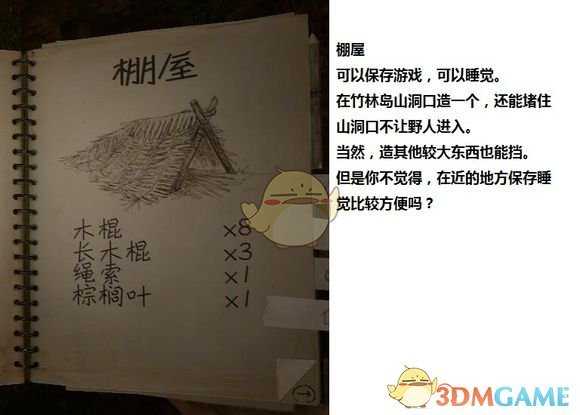 棚屋
木棍 x8
长木棍 x3
绳索 x1
棕榈叶 x1
棚屋
可以保存游戏，可以睡觉。
在竹林岛山洞口造一个，还能堵住
山洞口不让野人进入。
当然，造其他较大东西也能挡。
但是你不觉得，在近的地方保存睡
觉比较方便吗？
3DMGAME